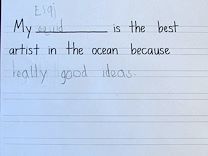 My squid is the best
artist in the ocean because
really good ideas.